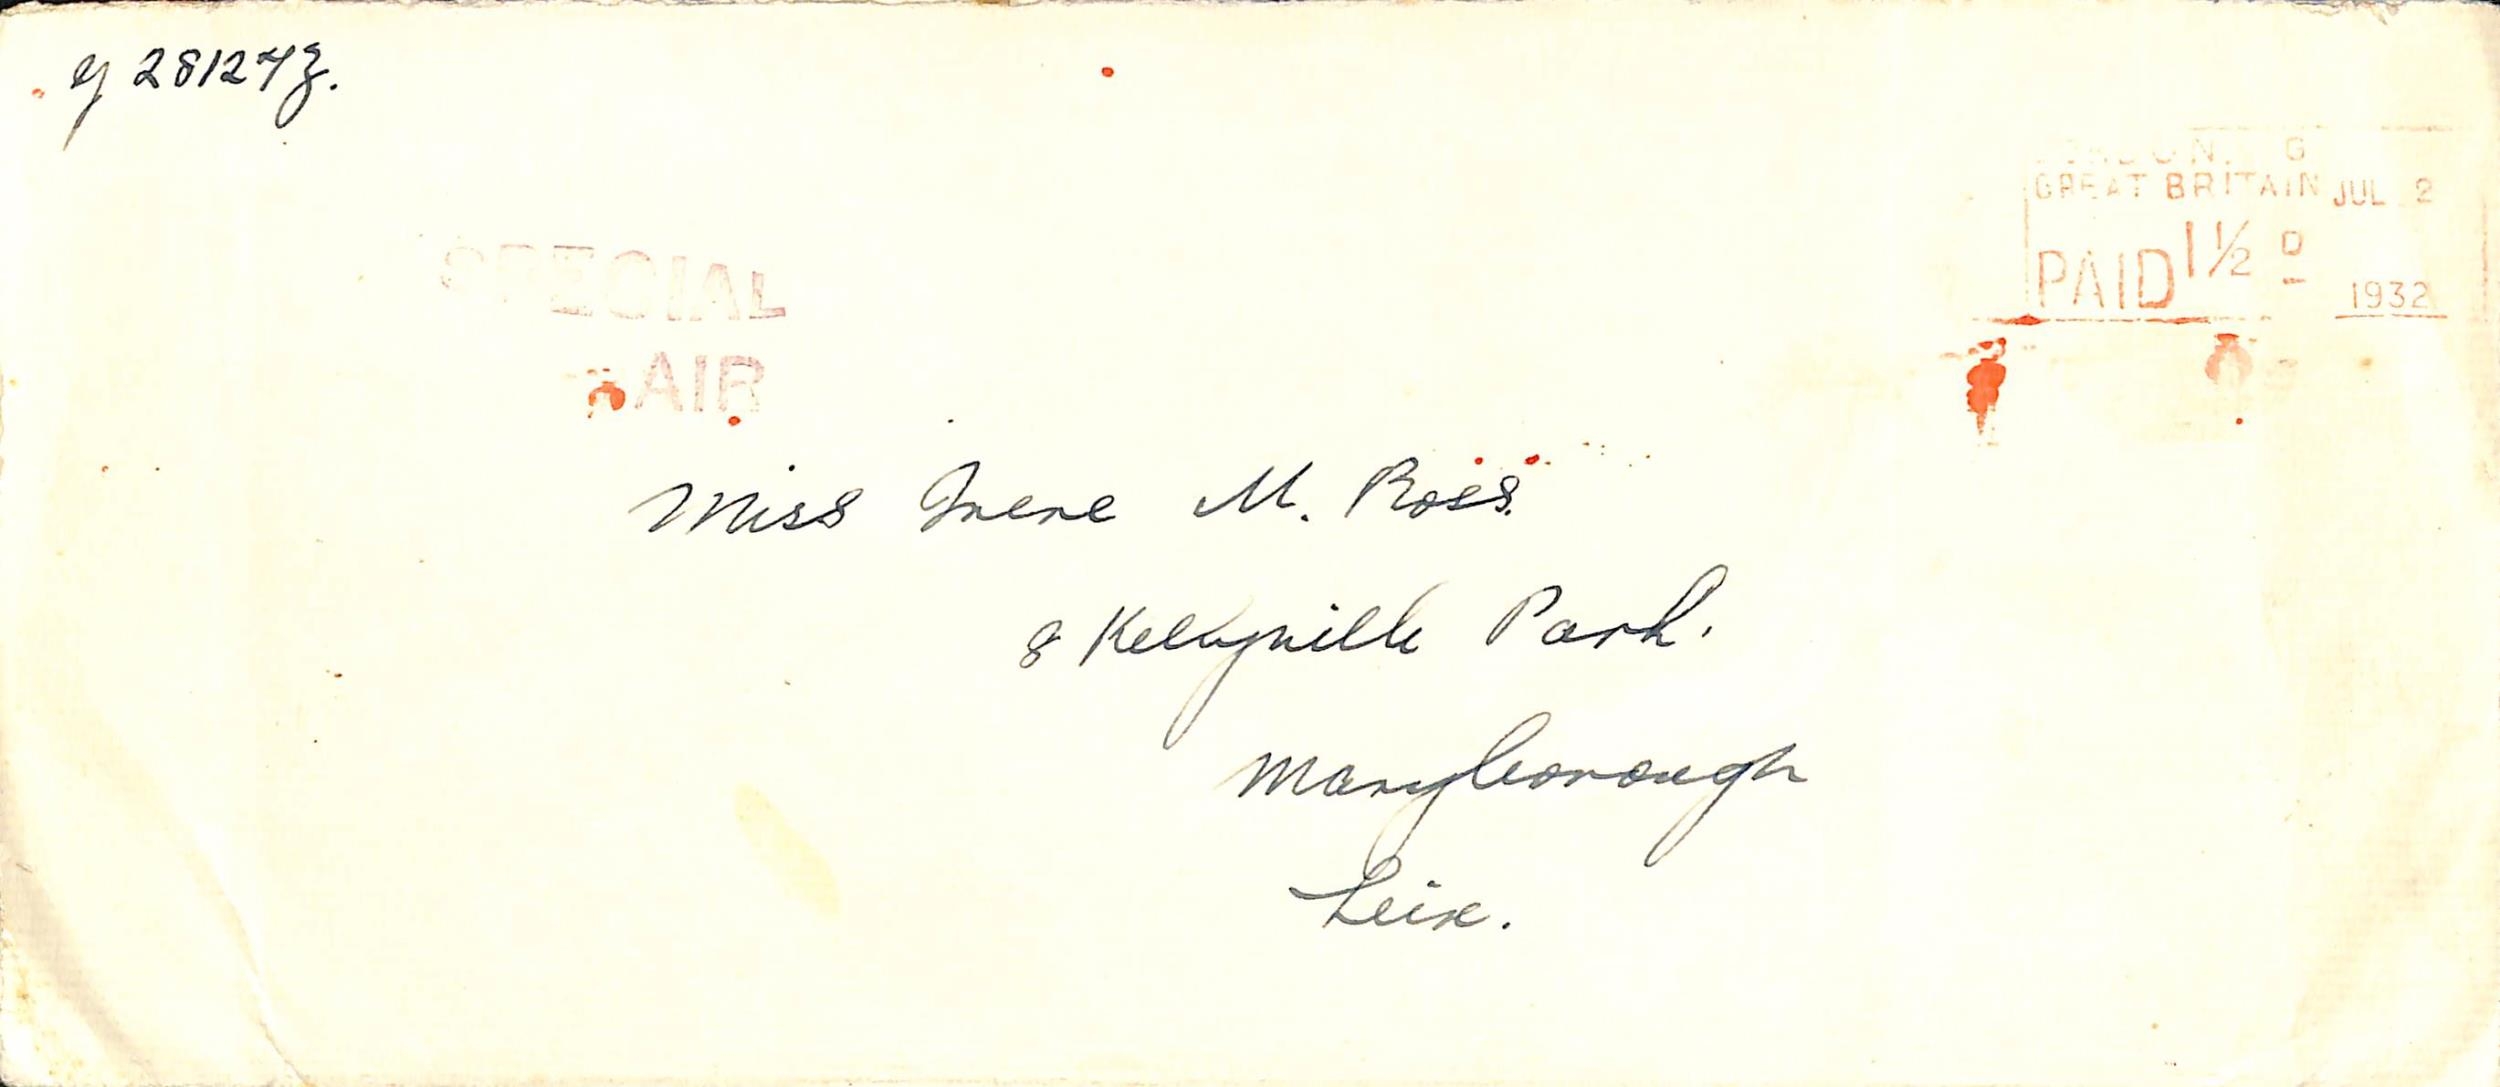 y 28127z.
GREAT BRITAIN JUL 2
PAID 1½ D
1932
SPECIAL
AIR
Miss Irene M. Ross.
8 Kellyville Park.
Maryborough
Leix.